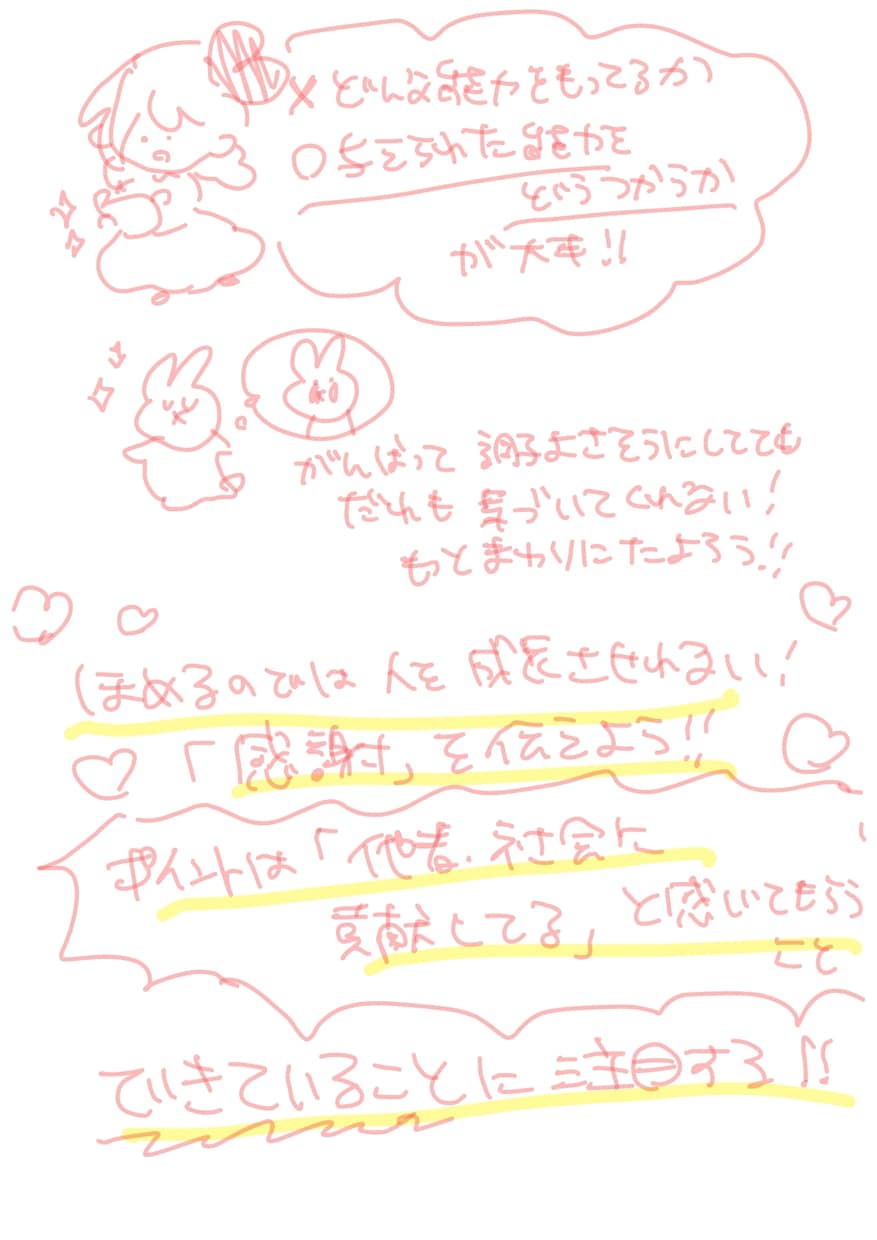 × どんな能力をもってるか
○ 与えられた能力を
どうつかうか
が大事!!
がんばって 調子よさそうにしてても
だれも 気づいてくれない!
もっとまわりにたよろう!!
ほめるのでは 人を 成長させれない!
「感謝」を伝えよう!!
ポイントは「他者・社会に
貢献してる」と感じてもらう
こと
できていることに注目する!!